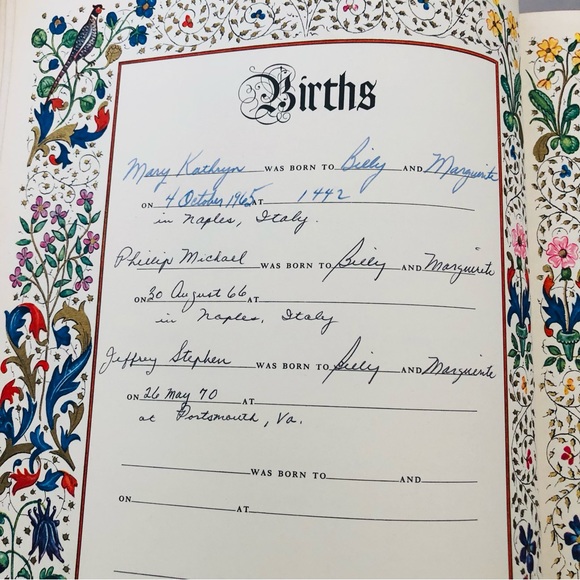 Births
Mary Kathryn WAS BORN TO Billy AND Marguerite
ON 4 October 1965 AT 1442
in Naples, Italy.
Phillip Michael WAS BORN TO Billy AND Marguerite
ON 30 August 66 AT
in Naples, Italy
Jeffrey Stephen WAS BORN TO Billy AND Marguerite
ON 26 May 70 AT
at Portsmouth, Va.
WAS BORN TO AND
ON AT